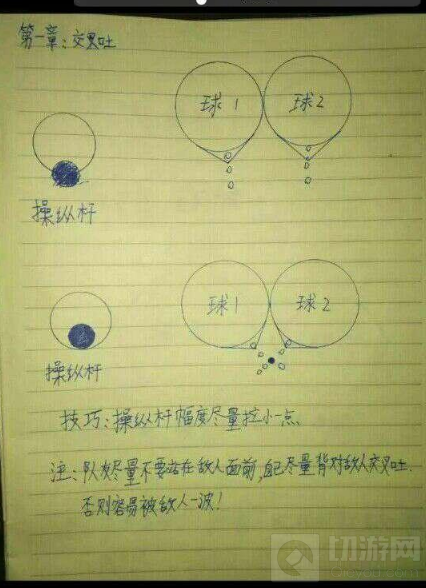 第一章：交叉吐
球1
球2
操纵杆
球1
球2
操纵杆
技巧：操纵杆幅度尽量拉小一点
注：队友尽量不要站在敌人面前，自己尽量背对敌人交叉吐
否则容易被敌人一波！
切游网